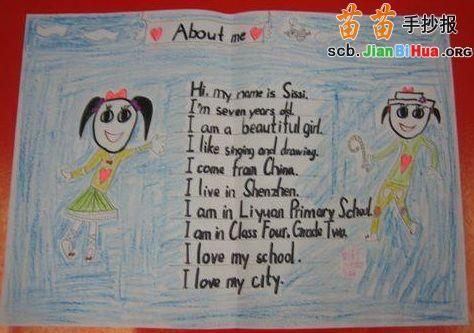 苗苗手抄报
scb.JianBiHua.org
About me
Hi, my name is Sissi.
I'm seven years old.
I am a beautiful girl.
I like singing and drawing.
I come from China.
I live in Shenzhen.
I am in Liyuan Primary School.
I am in Class Four, Grade Two.
I love my school.
I love my city.